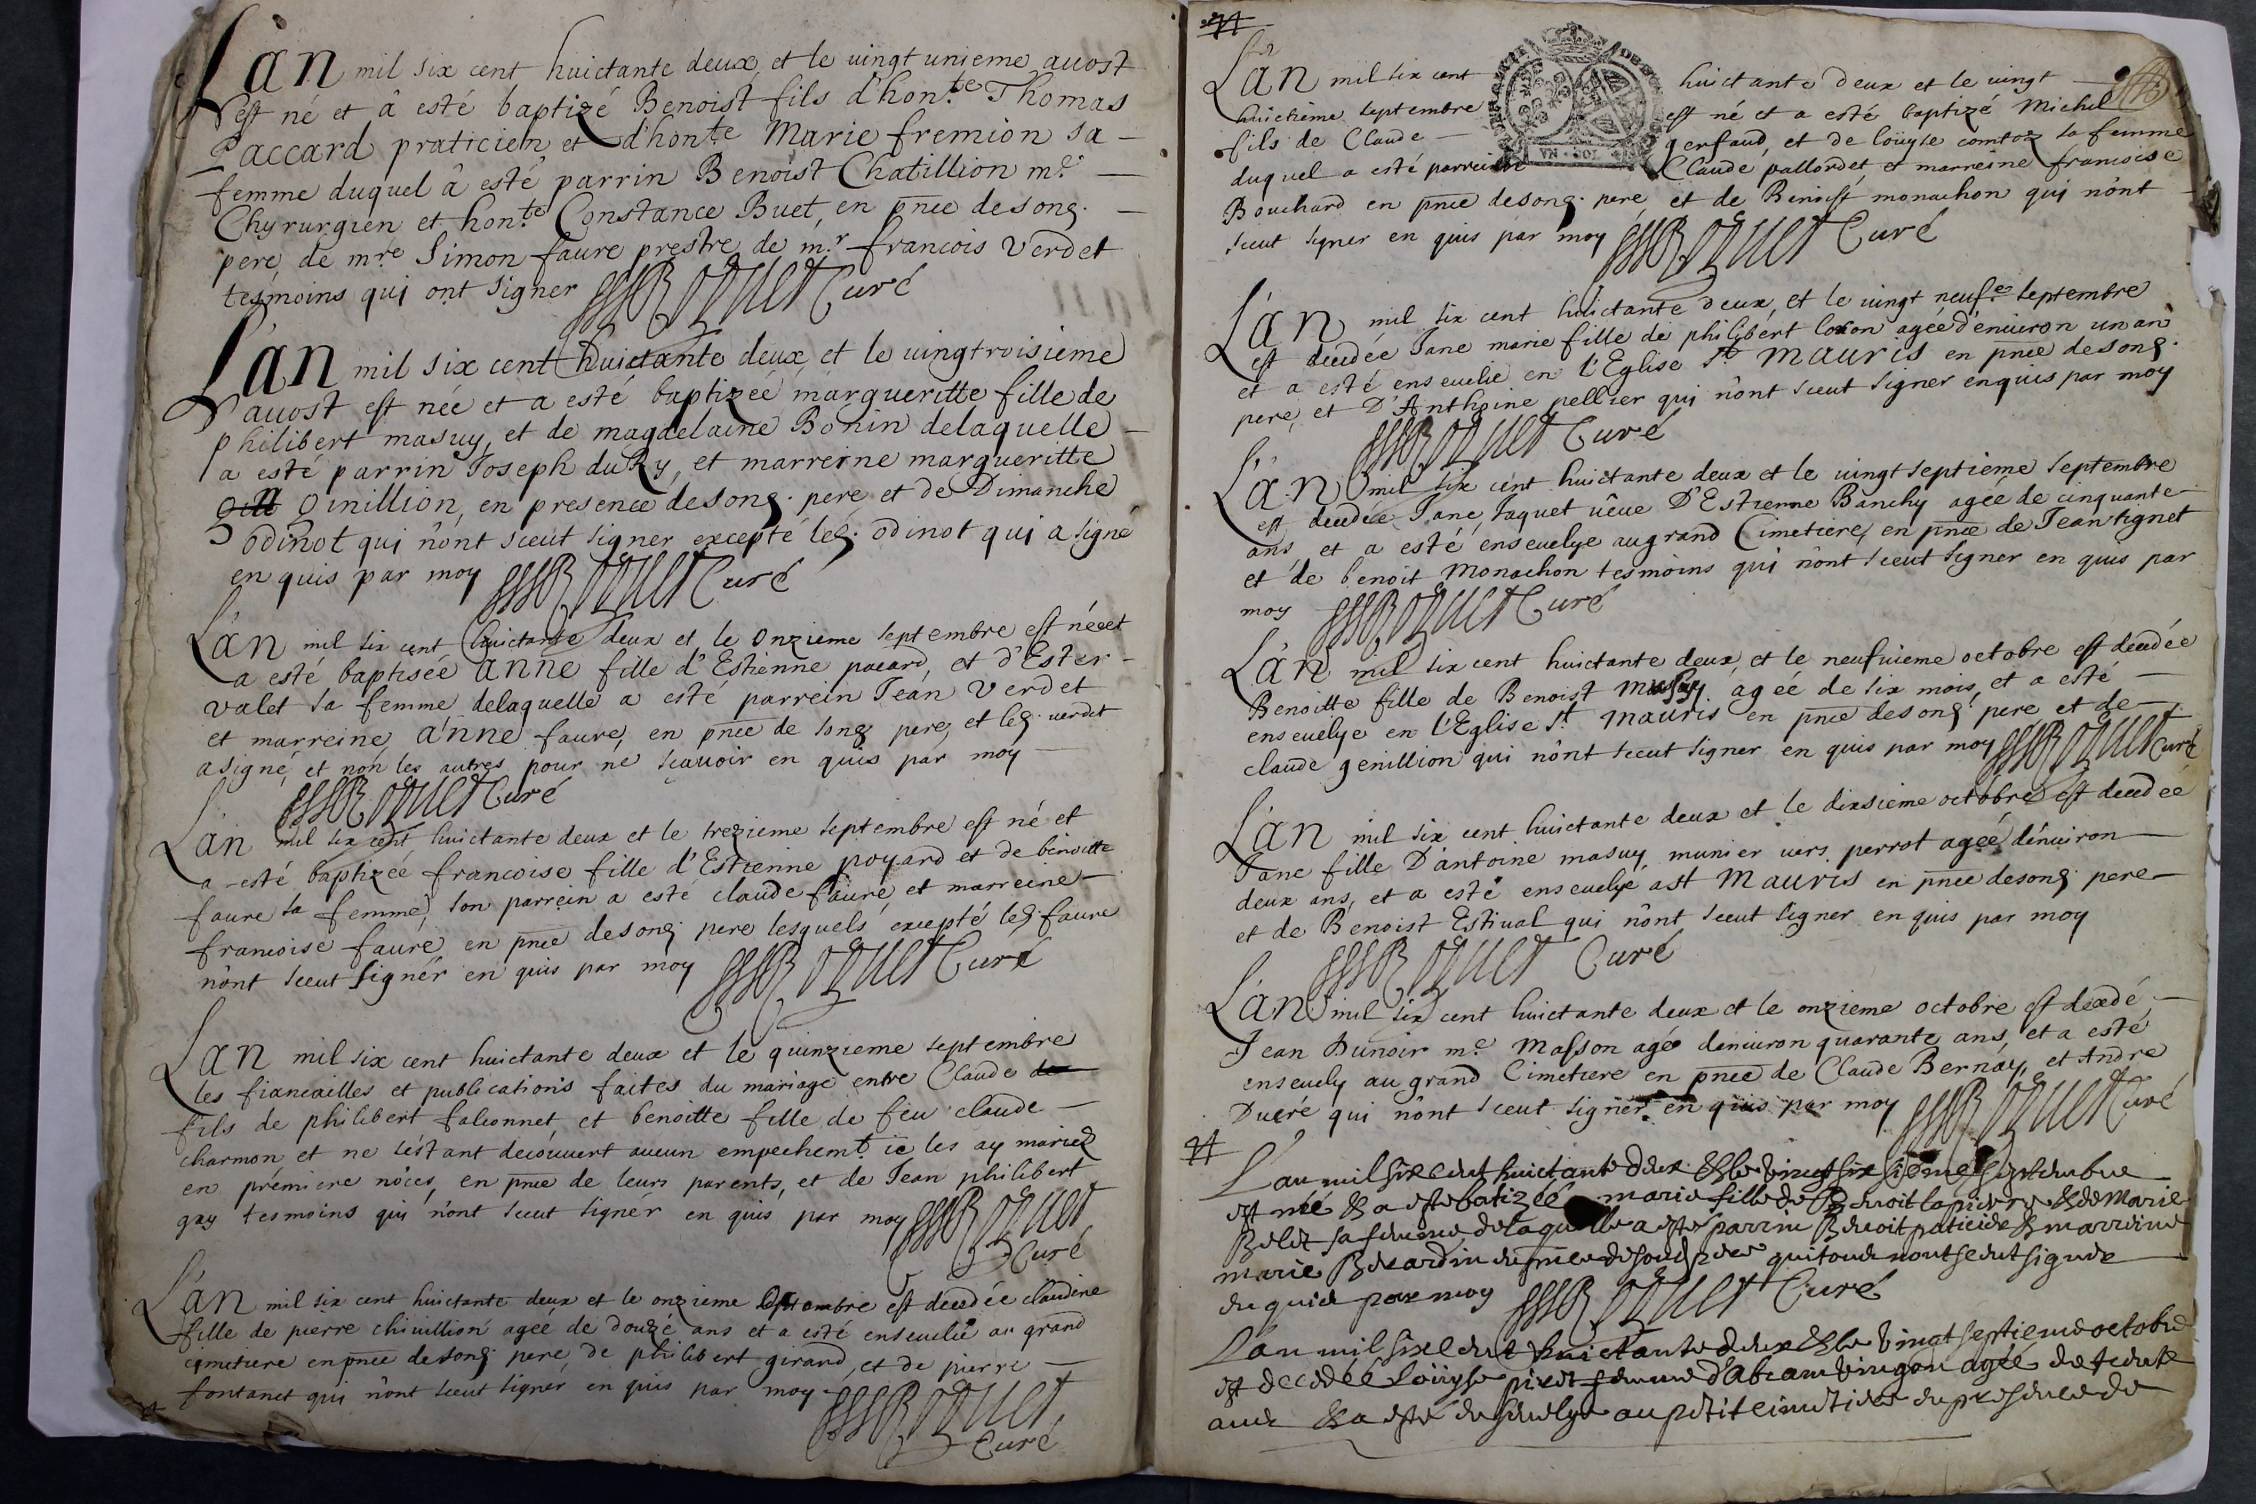 L'an mil six cent huictante deux et le vingt unieme avost
est né et â esté baptizé Benoist fils d'hon.te Thomas
Paccard praticien et d'hon.te Marie fremion sa
femme duquel â esté parrin Benoist Chatillion m.e
Chyrurgien et hon.te Constance Buet, en pnce de song.
pere, de m.re Simon faure prestre, de m.r francois Verdet
tesmoins qui ont signer Curé
L'an mil six cent huictante deux et le vingtroisieme
avost est née et a esté baptizéé margueritte fille de
philibert masuy, et de magdelaine Bonin delaquelle
a esté parrin Joseph duRy, et marreine margueritte
ginillion, en presence de song. pere et de Dimanche
odinot qui n'ont sceut signer excepté led. odinot qui a signé
en quis par moy Curé
L'an mil six cent huictante deux et le onzieme septembre est née et
a esté baptiséé anne fille d'Estienne pacard, et d'Ester
valet sa femme delaquelle a esté parrein Jean Verdet
et marreine, anne faure, en pnce de song pere, et led. verdet
a signé, et non les autres pour ne sçavoir en quis par moy
Curé
L'an mil six cent huictante deux et le trezieme septembre est né et
a esté baptizéé francoise fille d'Estienne poyard et de benoitte
faure sa femme, son parrein a esté claude faure, et marreine
francoise faure, en pnce de song pere lesquels excepté led. faure
n'ont sceut signér en quis par moy Curé
L'an mil six cent huictante deux et le quinzieme septembre
les fiancailles et publications faites du mariage entre Claude
fils de philibert falconnet et benoitte fille de feu claude
charmon et ne s'estant decouvert aucun empechem.t ie les ay mariez
en premiere nôces, en pnce de leurs parents, et de Jean philibert
gay tesmoins qui n'ont sceut signér en quis par moy
Curé
L'an mil six cent huictante deux et le onzieme septembre est decedée claudine
fille de pierre chivillion agéé de douze ans et a esté ensevelie au grand
cimetiere en pnce de song pere, de philibert girand, et de pierre
fontanet qui n'ont sceut signér en quis par moy
Curé
L'an mil six cent huictante deux et le vingt
huictieme septembre est né et a esté baptizé Michel
fils de Claude gerfaud, et de loüyse comtoz sa femme
duquel a esté parrein Claude pallordet, et marreine francoise
Bouchard en pnce de song. pere et de Benoist monachon qui n'ont
sceut signer en quis par moy Curé
L'an mil six cent huictante deux, et le vingt neuf.e septembre
est decedée Jane marie fille de philibert loron agéé d'environ un an
et a esté ensevelie en l'Eglise st mauris en pnce de song.
pere, et D'Anthoine pellier qui n'ont sceut signer enquis par moy
Curé
L'an mil six cent huictante deux et le vingt septieme septembre
est decedée Jane Jaquet vêve D'Estienne Banchy agéé de cinquante
ans et a esté ensevelye au grand Cimetiere, en pnce de Jean tignet
et de benoit Monachon tesmoins qui n'ont sceut signer en quis par
moy Curé
L'an mil six cent huictante deux, et le neufvieme octobre est decedée
Benoitte fille de Benoist agéé de six mois, et a esté
ensevelye en l'Eglise st mauris en pnce de song pere et de
claude genillion qui n'ont sceut signer en quis par moy Curé
L'an mil six cent huictante deux et le dixsieme octobre est decedéé
Jane fille D'antoine masuy munier vers perrot agéé d'environ
deux ans, et a esté ensevelye a st Mauris en pnce de song pere
et de Benoist Estival qui n'ont sceut signer en quis par moy
Curé
L'an mil six cent huictante deux et le onzieme octobre est decedé
Jean Dunoir m.e Masson agé d'environ quarante ans, et a esté
ensevely au grand Cimetiere en pnce de Claude Bernay, et Andre
Ducré qui n'ont sceut signer en quis par moy Curé
L'an mil six cent huictante deux & le vingt six sieme septembre
est née & a esté batizéé marie fille de Benoit lapierre & de Marie
Belet sa femme delaquelle a esté parrin Benoit & marreine
marie Berardin en pnce de pere qui tous nont sceut signer
en quis par moy Curé
L'an mil six cent huictante deux & le vingt septieme octobre
est decedéé Loüyse pivet femme d'Abram vingon agéé de trente
ans & a esté ensevelye au petit cimetiere en presence de